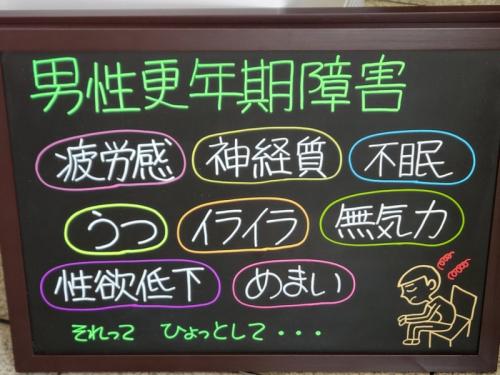 男性更年期障害
疲労感 神経質 不眠
うつ イライラ 無気力
性欲低下 めまい
それって ひょっとして・・・